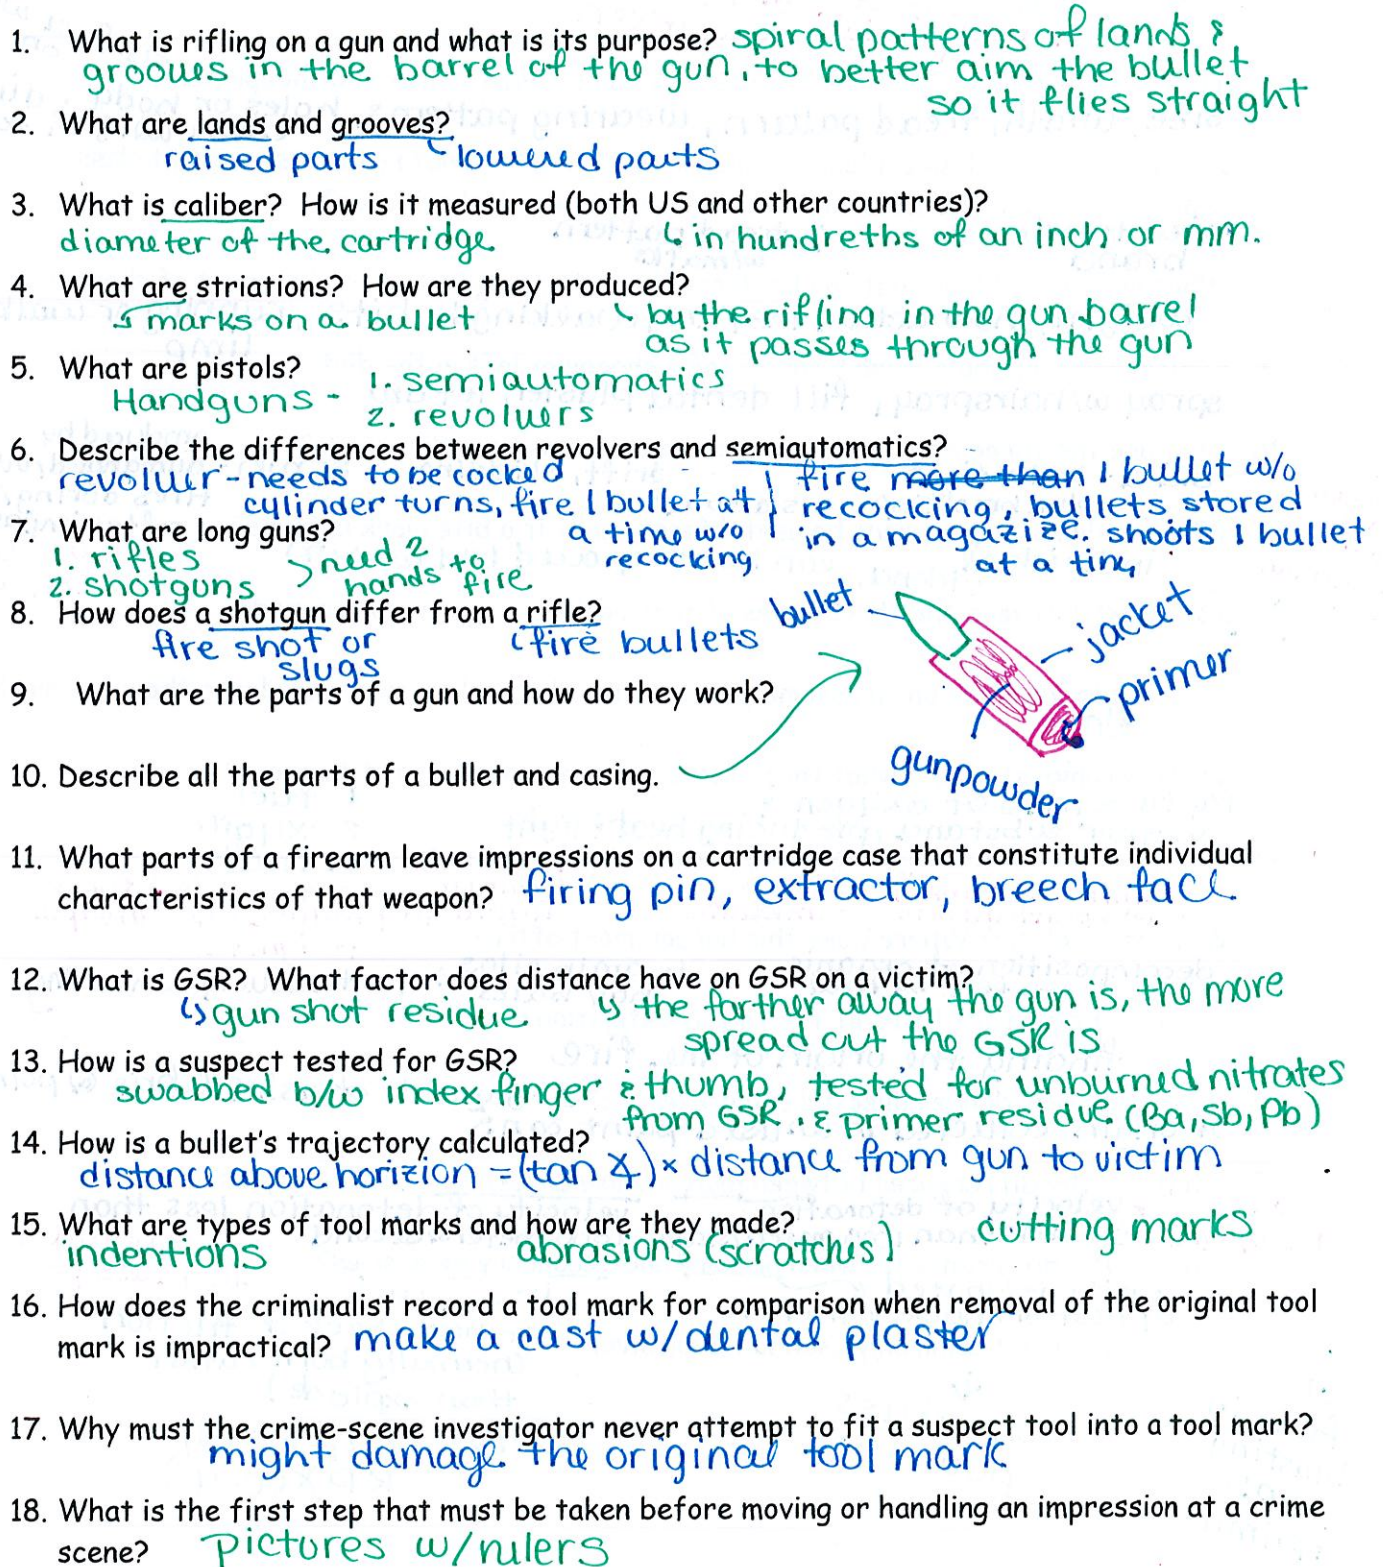 1. What is rifling on a gun and what is its purpose? spiral patterns of lands &
grooves in the barrel of the gun, to better aim the bullet
so it flies straight
2. What are lands and grooves?
raised parts lowered parts
3. What is caliber? How is it measured (both US and other countries)?
diameter of the cartridge ↳ in hundreths of an inch or mm.
4. What are striations? How are they produced?
↳ marks on a bullet by the rifling in the gun barrel
as it passes through the gun
5. What are pistols?
Handguns - 1. semiautomatics
2. revolvers
6. Describe the differences between revolvers and semiautomatics?
revolver - needs to be cocked
cylinder turns, fire 1 bullet at
a time w/o
recocking
fire more than 1 bullet w/o
recocking, bullets stored
in a magazize. shoots 1 bullet
at a time
7. What are long guns?
1. rifles
2. shotguns
need 2
hands to
fire
8. How does a shotgun differ from a rifle?
fire shot or
slugs
fire bullets
bullet
jacket
primer
gunpowder
9. What are the parts of a gun and how do they work?
10. Describe all the parts of a bullet and casing.
11. What parts of a firearm leave impressions on a cartridge case that constitute individual
characteristics of that weapon? firing pin, extractor, breech face
12. What is GSR? What factor does distance have on GSR on a victim?
↳ gun shot residue ↳ the farther away the gun is, the more
spread out the GSR is
13. How is a suspect tested for GSR?
swabbed b/w index finger & thumb, tested for unburned nitrates
from GSR & primer residue (Ba, Sb, Pb)
14. How is a bullet's trajectory calculated?
distance above horizion = (tan ∡) × distance from gun to victim
15. What are types of tool marks and how are they made?
indentions abrasions (scratches) cutting marks
16. How does the criminalist record a tool mark for comparison when removal of the original tool
mark is impractical? make a cast w/ dental plaster
17. Why must the crime-scene investigator never attempt to fit a suspect tool into a tool mark?
might damage the original tool mark
18. What is the first step that must be taken before moving or handling an impression at a crime
scene? Pictures w/ rulers